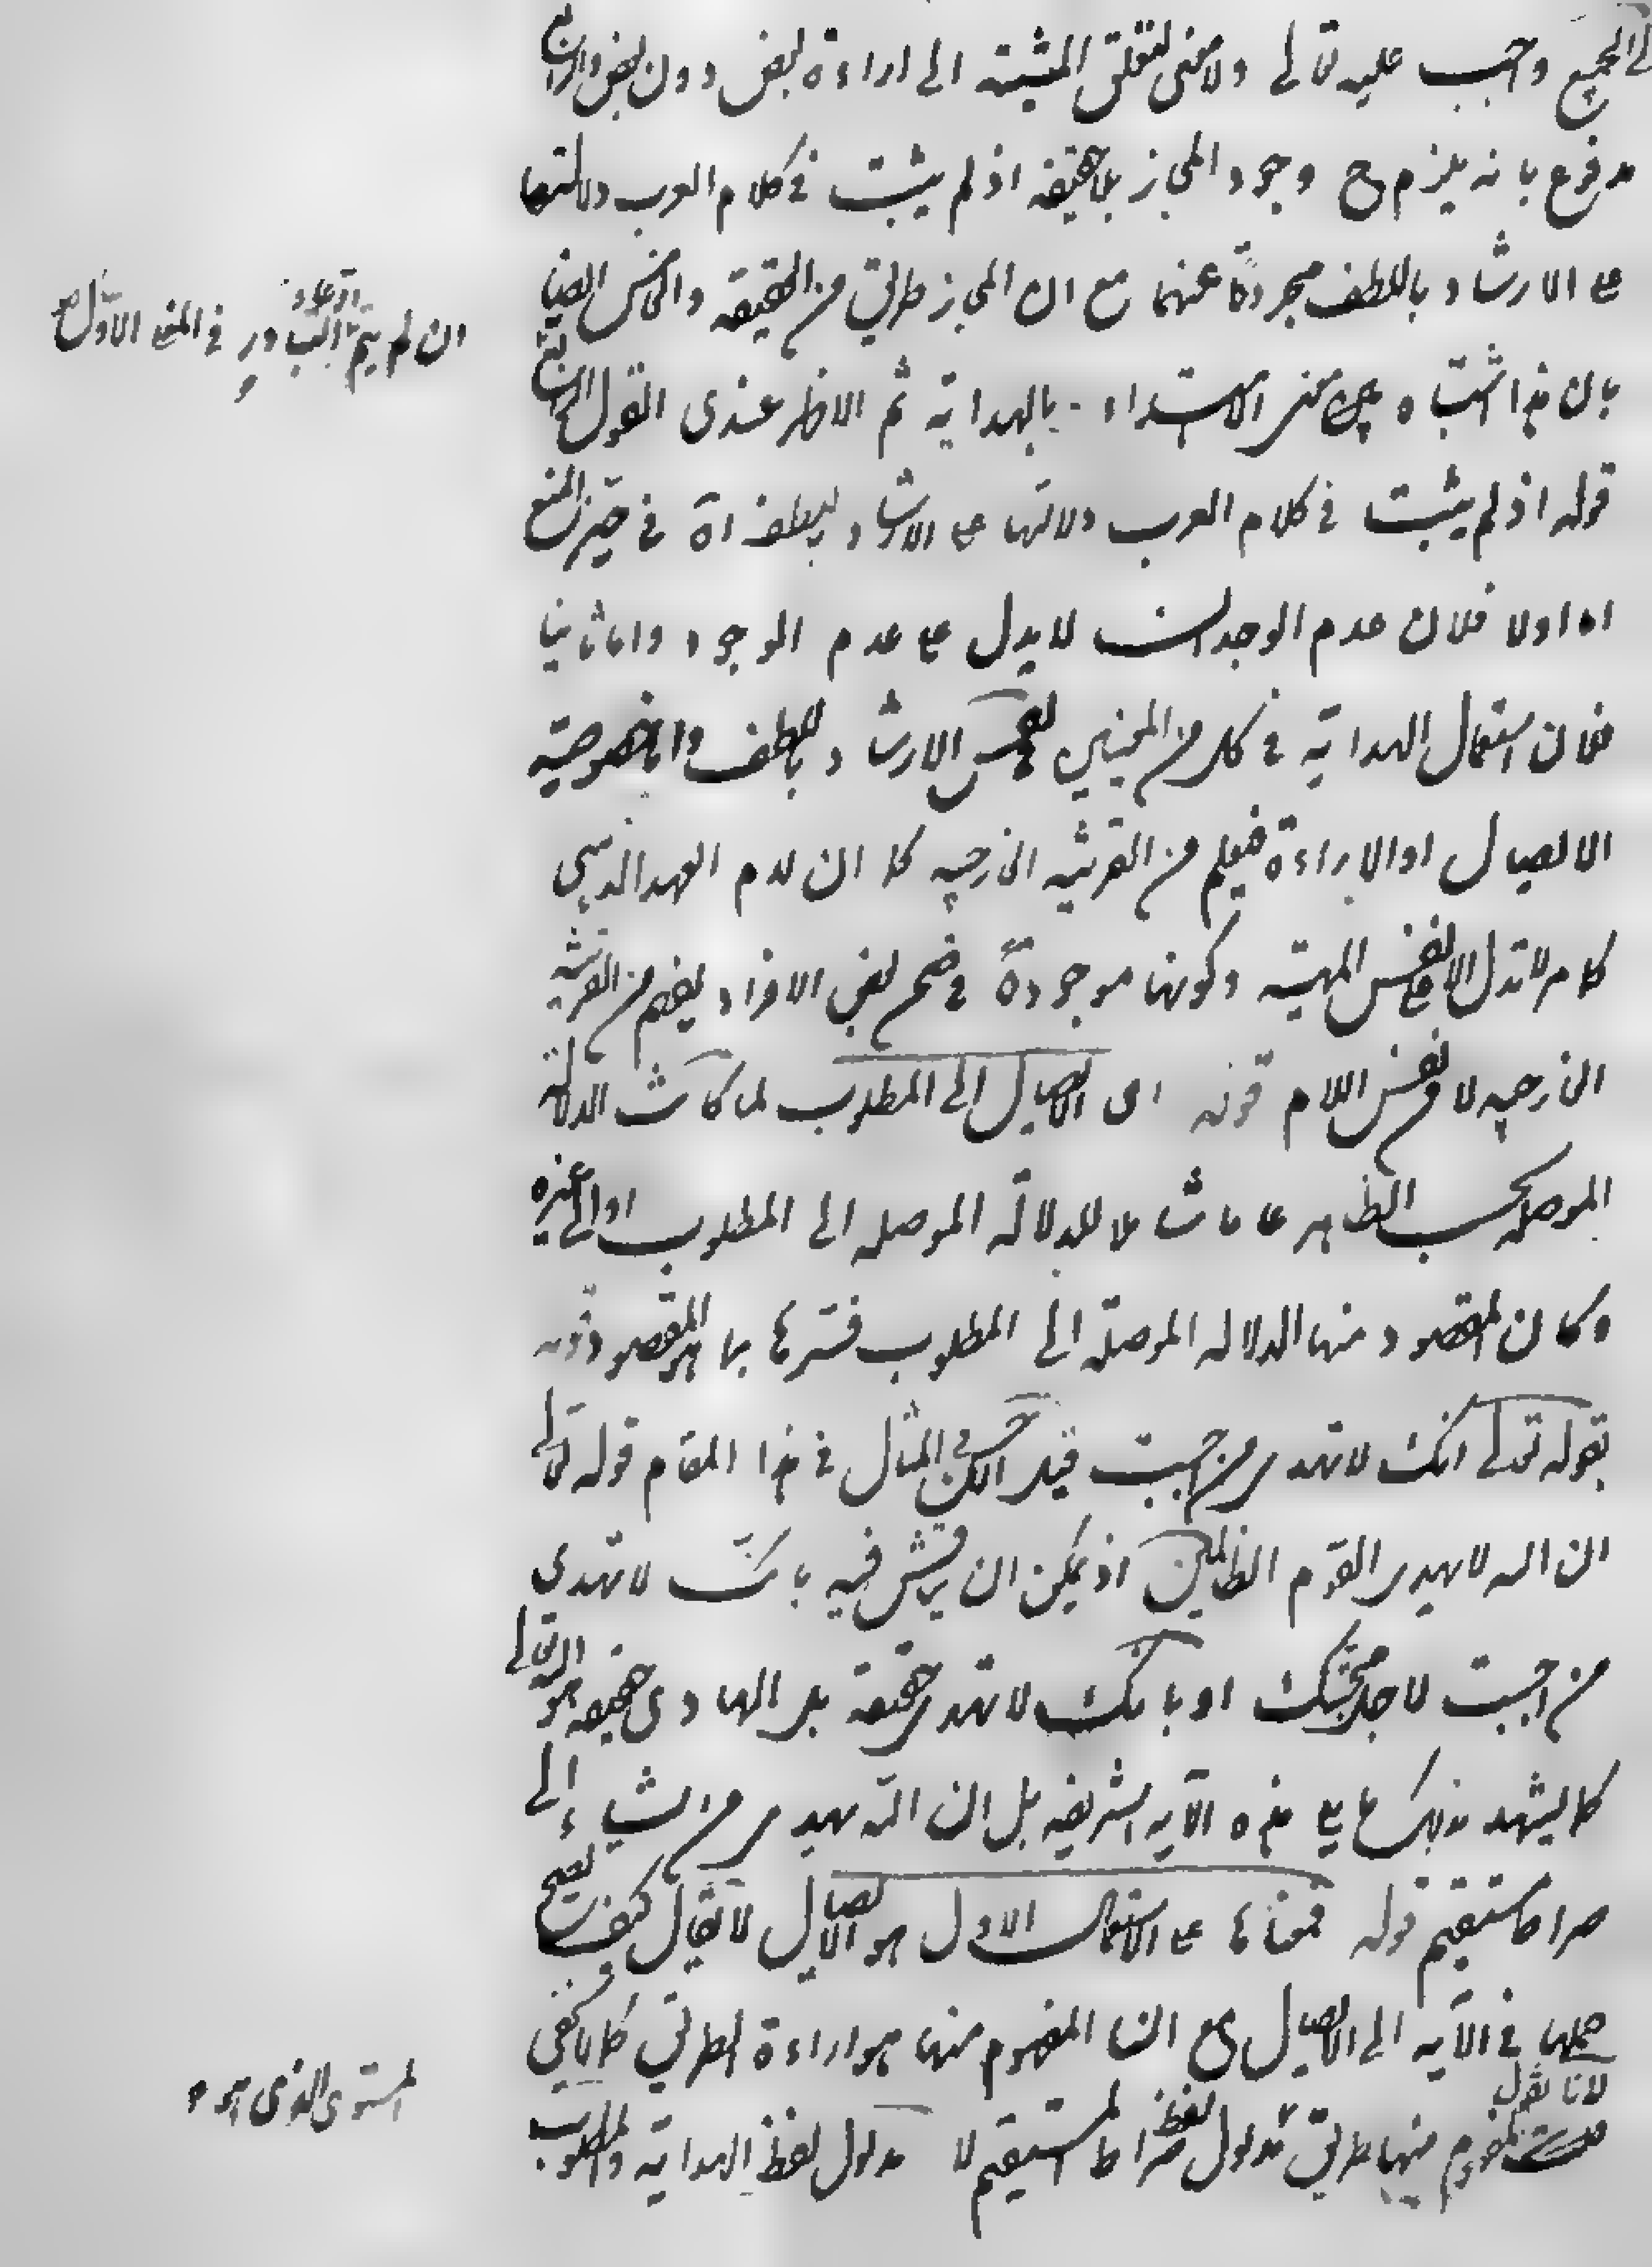 الجميع واجب عليه تعالى ولا معنى لتعلق المشية الى اراءة بعض دون بعض والرابع
مدفوع بانه يلزم ح وجود المجاز بلا حقيقة اذ لم يثبت في كلام العرب دلالتها
على الارشاد باللطف مجردة عنهما مع ان المجاز طريق من الحقيقة والخامس ايضا
بان هذا اشتباه الاستهداء بالهداية ثم الاظهر عندى القول الرابع
قوله اذ لم يثبت في كلام العرب دلالتها على الارشاد بلطف اه في حيز المنع
اما اولا فلان عدم الوجدان لا يدل على عدم الوجود واما ثانيا
فلان استعمال الهداية في كل من المعنيين الارشاد باللطف واما خصوصية
الايصال او الاراءة فيعلم من القرينة الخارجية كما ان لام العهد الذهنى
كلام لا تدل الا على نفس المهية وكونها موجودة في ضمن بعض الافراد يفهم من القرينة
الخارجية لا من نفس اللام قوله اى الايصال الى المطلوب لما كانت الدلالة
الموصلة بحسب الظاهر عاما شاملا للدلالة الموصلة الى المطلوب او الى غيره
وكان المقصود منها الدلالة الموصلة الى المطلوب فسرها بما هو المقصود قوله
بقوله تعالى انك لا تهدى من احببت قيل المثال في هذا المقام قوله تعالى
ان الله لا يهدى القوم الظالمين اذ يمكن ان يناقش فيه بانك لا تهدى
من احببت لاجل محبتك او بانك لا تهدى حقيقة بل الهادى حقيقة هو الله تعالى
كما يشهد بذلك هذه الآية الشريفة بل ان الله يهدى من يشاء الى
صراط مستقيم قوله فمعناها على الاستعمال الاول هو الايصال لا يقال كيف يصح
حملها في الآية الى الايصال مع ان المفهوم منها هو اراءة الطريق كما لا يخفى
لانا نقول
المفهوم منها طريق مدلول لفظ صراط المستقيم لا مدلول لفظ الهداية والمطلوب
ان لم يتم ادعاء التبادر في المعنى الاول صح
المستوى الذى هو